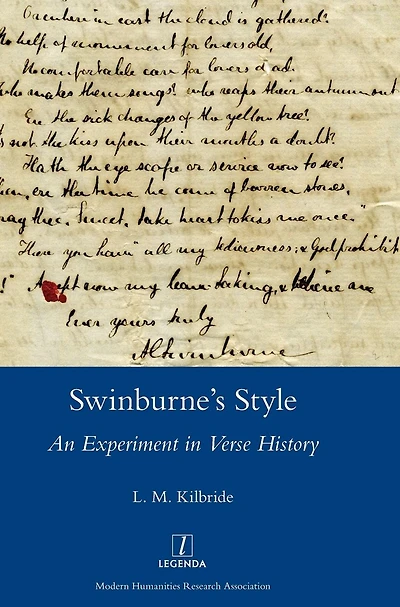 in east the cloud is gathered?
No help of moonment for lovers old,
No comfortable care for lovers dead.
who makes them songs? who reaps their autumn out
Ere the sick changes of the yellow tree?
not the kiss upon their mouths a doubt?
Hath the eye scope or service now to see?
ere the time he come of barren stones,
pray thee, Sweet, take heart to kiss me once."
There you have all my tediousness; & God prohibit
!" Accept now my leave-taking, & believe me
Ever yours truly
ACSwinburne
Swinburne's Style
An Experiment in Verse History
L. M. Kilbride
l
LEGENDA
Modern Humanities Research Association